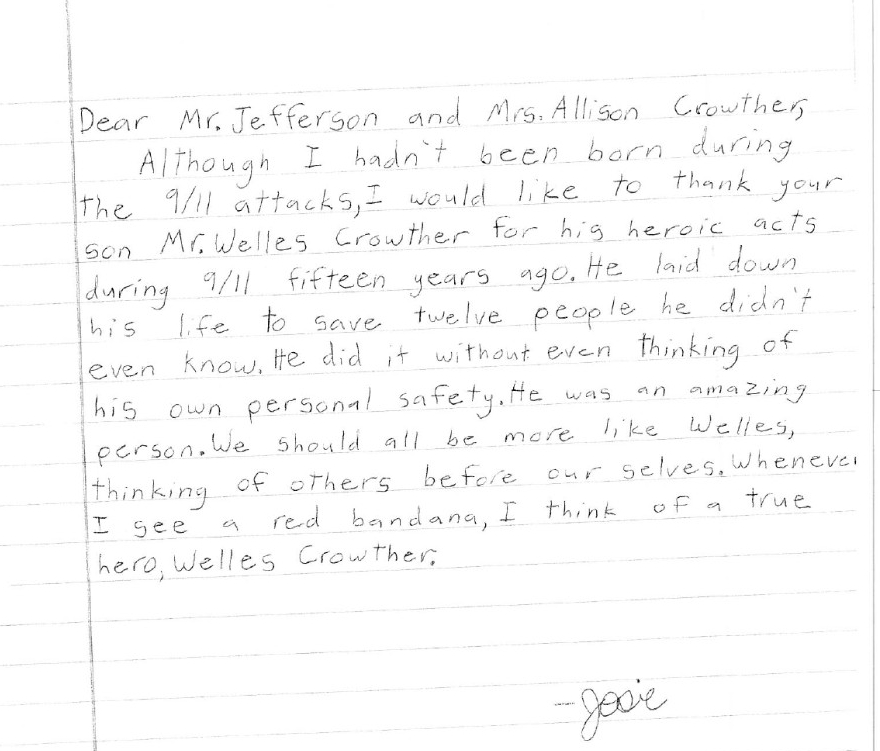 Dear Mr. Jefferson and Mrs. Allison Crowther,
Although I hadn't been born during
the 9/11 attacks, I would like to thank your
son Mr. Welles Crowther for his heroic acts
during 9/11 fifteen years ago. He laid down
his life to save twelve people he didn't
even know. He did it without even thinking of
his own personal safety. He was an amazing
person. We should all be more like Welles,
thinking of others before our selves. Whenever
I see a red bandana, I think of a true
hero, Welles Crowther.
-Josie